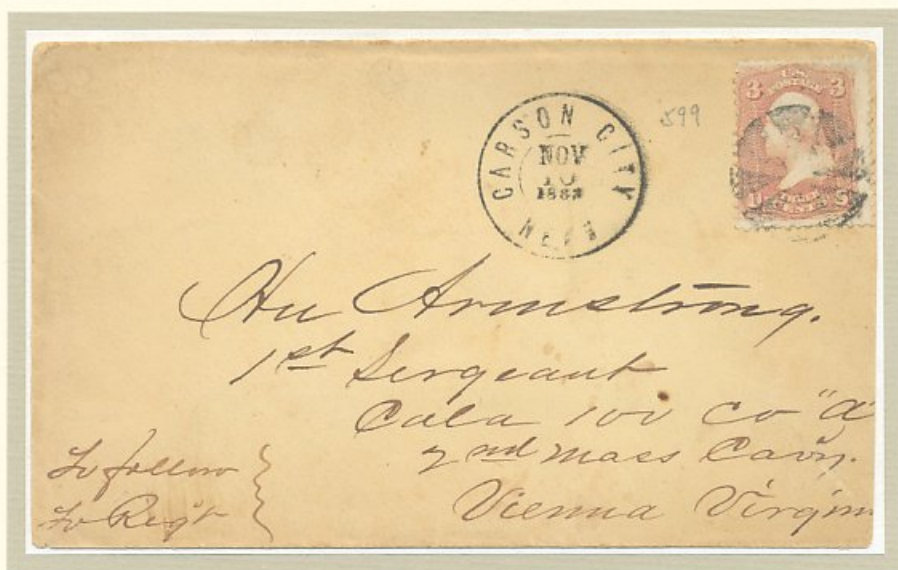 CARSON CITY
NOV
10
NEV.
599
U.S. POSTAGE
3 3
Armstrong.
1st Sergeant
Cala 100 Co "A"
2nd Mass Cavy.
Vienna Virgin
To follow
To Regt